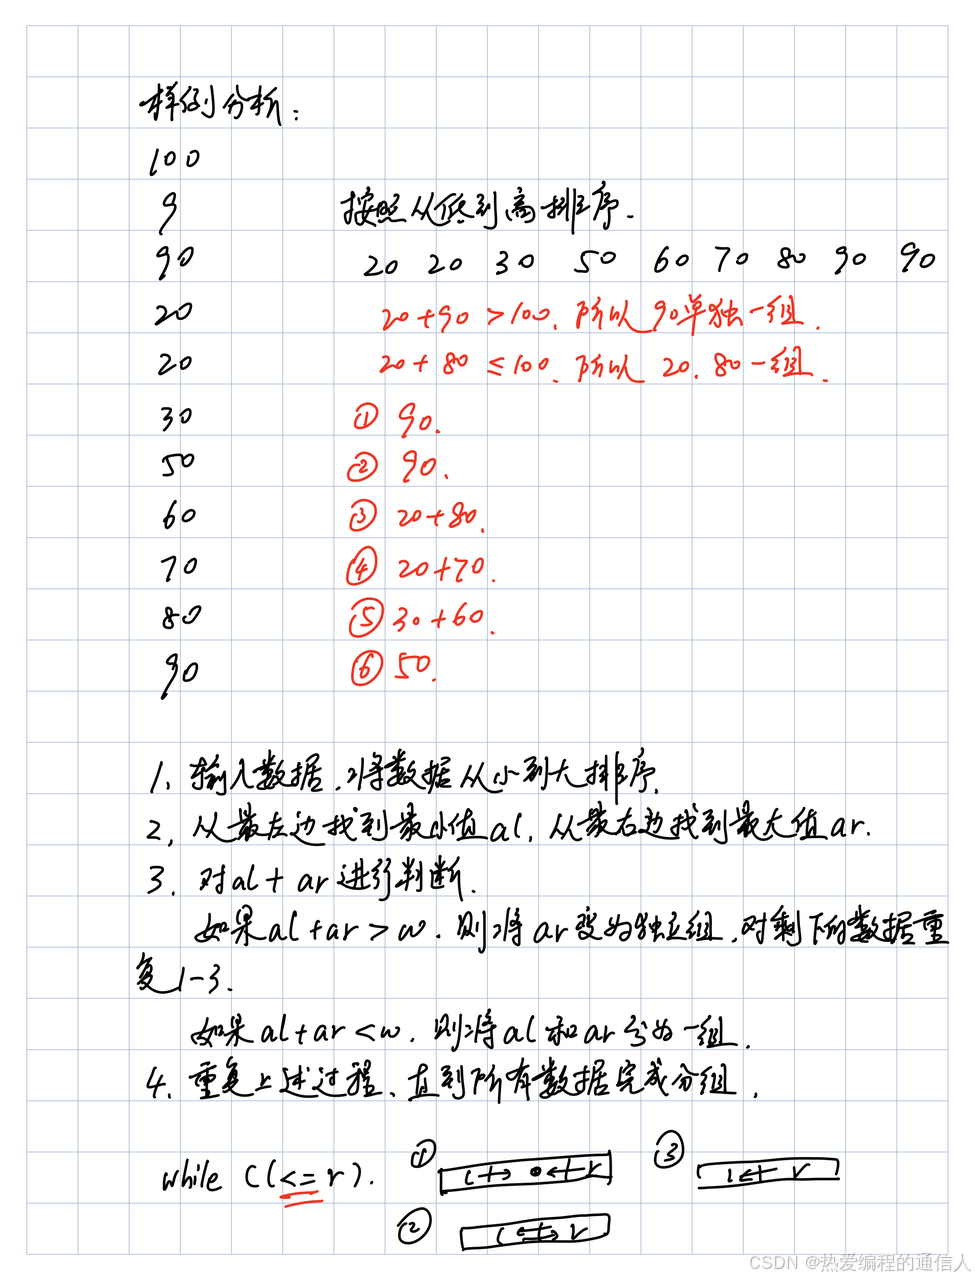 样例分析：
100
9
按照从低到高排序.
90
20 20 30 50 60 70 80 90 90
20
20+90 >100. 所以 90单独一组.
20
20+80 ≤100. 所以 20. 80一组.
30
① 90.
50
② 90.
60
③ 20+80.
70
④ 20+70.
80
⑤ 30+60.
90
⑥ 50.
1、输入数据，将数据从小到大排序.
2、从最左边找到最小值al, 从最右边找到最大值ar.
3. 对al+ar进行判断.
如果al+ar>w. 则将ar变为独立组，对剩下的数据重
复1-3.
如果al+ar<w. 则将al和ar分为一组.
4. 重复上述过程、直到所有数据完成分组.
while (l<=r).
①
l r
③
l r
②
l r
CSDN @热爱编程的通信人